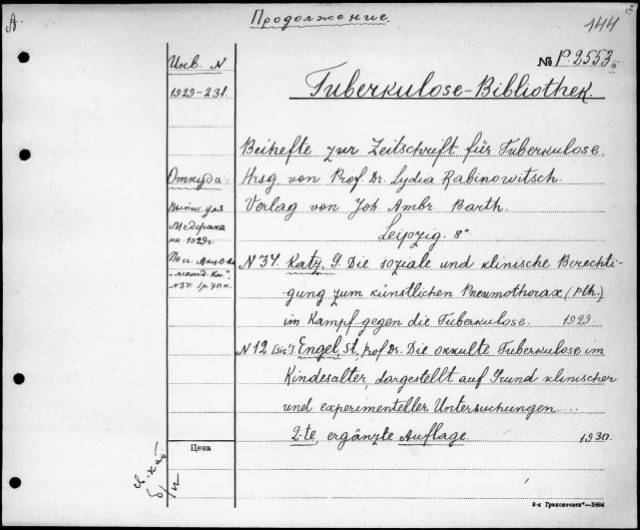 А.
Продолжение.
144
Инв. N
№ P. 2553 III
1929-231.
Tuberkulose-Bibliothek.
Beihefte zur Zeitschrift für Tuberkulose.
Откуда
Hrsg von Prof. Dr. Lydia Rabinowitsch.
Verlag von Joh. Ambr. Barth.
Leipzig. 8°
Медфака
на 1929г.
N 37. Katz, G. Die soziale und klinische Berechti-
gung zum künstlichen Pneumothorax (Pth.)
im Kampf gegen die Tuberkulose. 1929.
N 12 [sic!]. Engel, St., prof. Dr. Die okkulte Tuberkulose im
Kindesalter, dargestellt auf Grund klinischer
und experimenteller Untersuchungen....
2-te, ergänzte Auflage 1930.
Цена